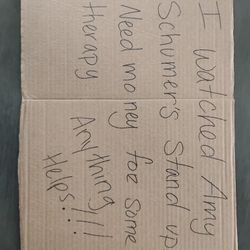 I watched Amy
Schumer's Stand up
Need money for some
therapy
Anything
Helps!!!